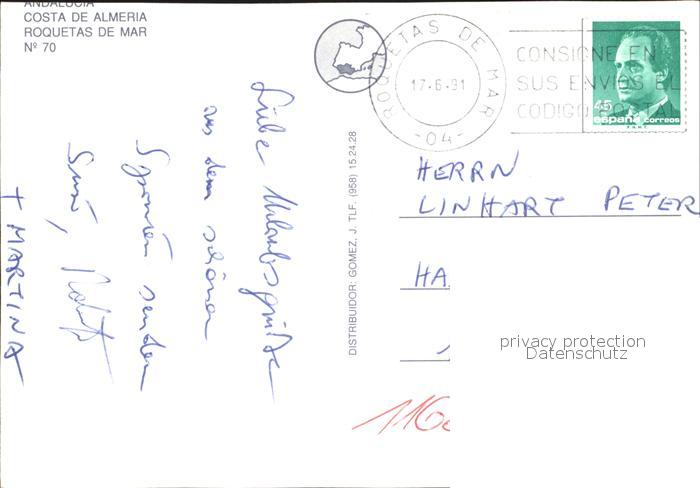 ANDALUCIA
COSTA DE ALMERIA
ROQUETAS DE MAR
Nº 70
Liebe Urlaubsgrüße
aus dem schönen
Spanien senden
Susi, Robert
+ MARTINA
DISTRIBUIDOR: GOMEZ, J. TLF. (958) 15.24.28
ROQUETAS DE MAR
17-6-91
-04-
CONSIGNE EN
SUS ENVIOS EL
CODIGO POSTAL
45
españa correos
F.N.M.T.
HERRN
LINHART PETER
HA
116
privacy protection
Datenschutz